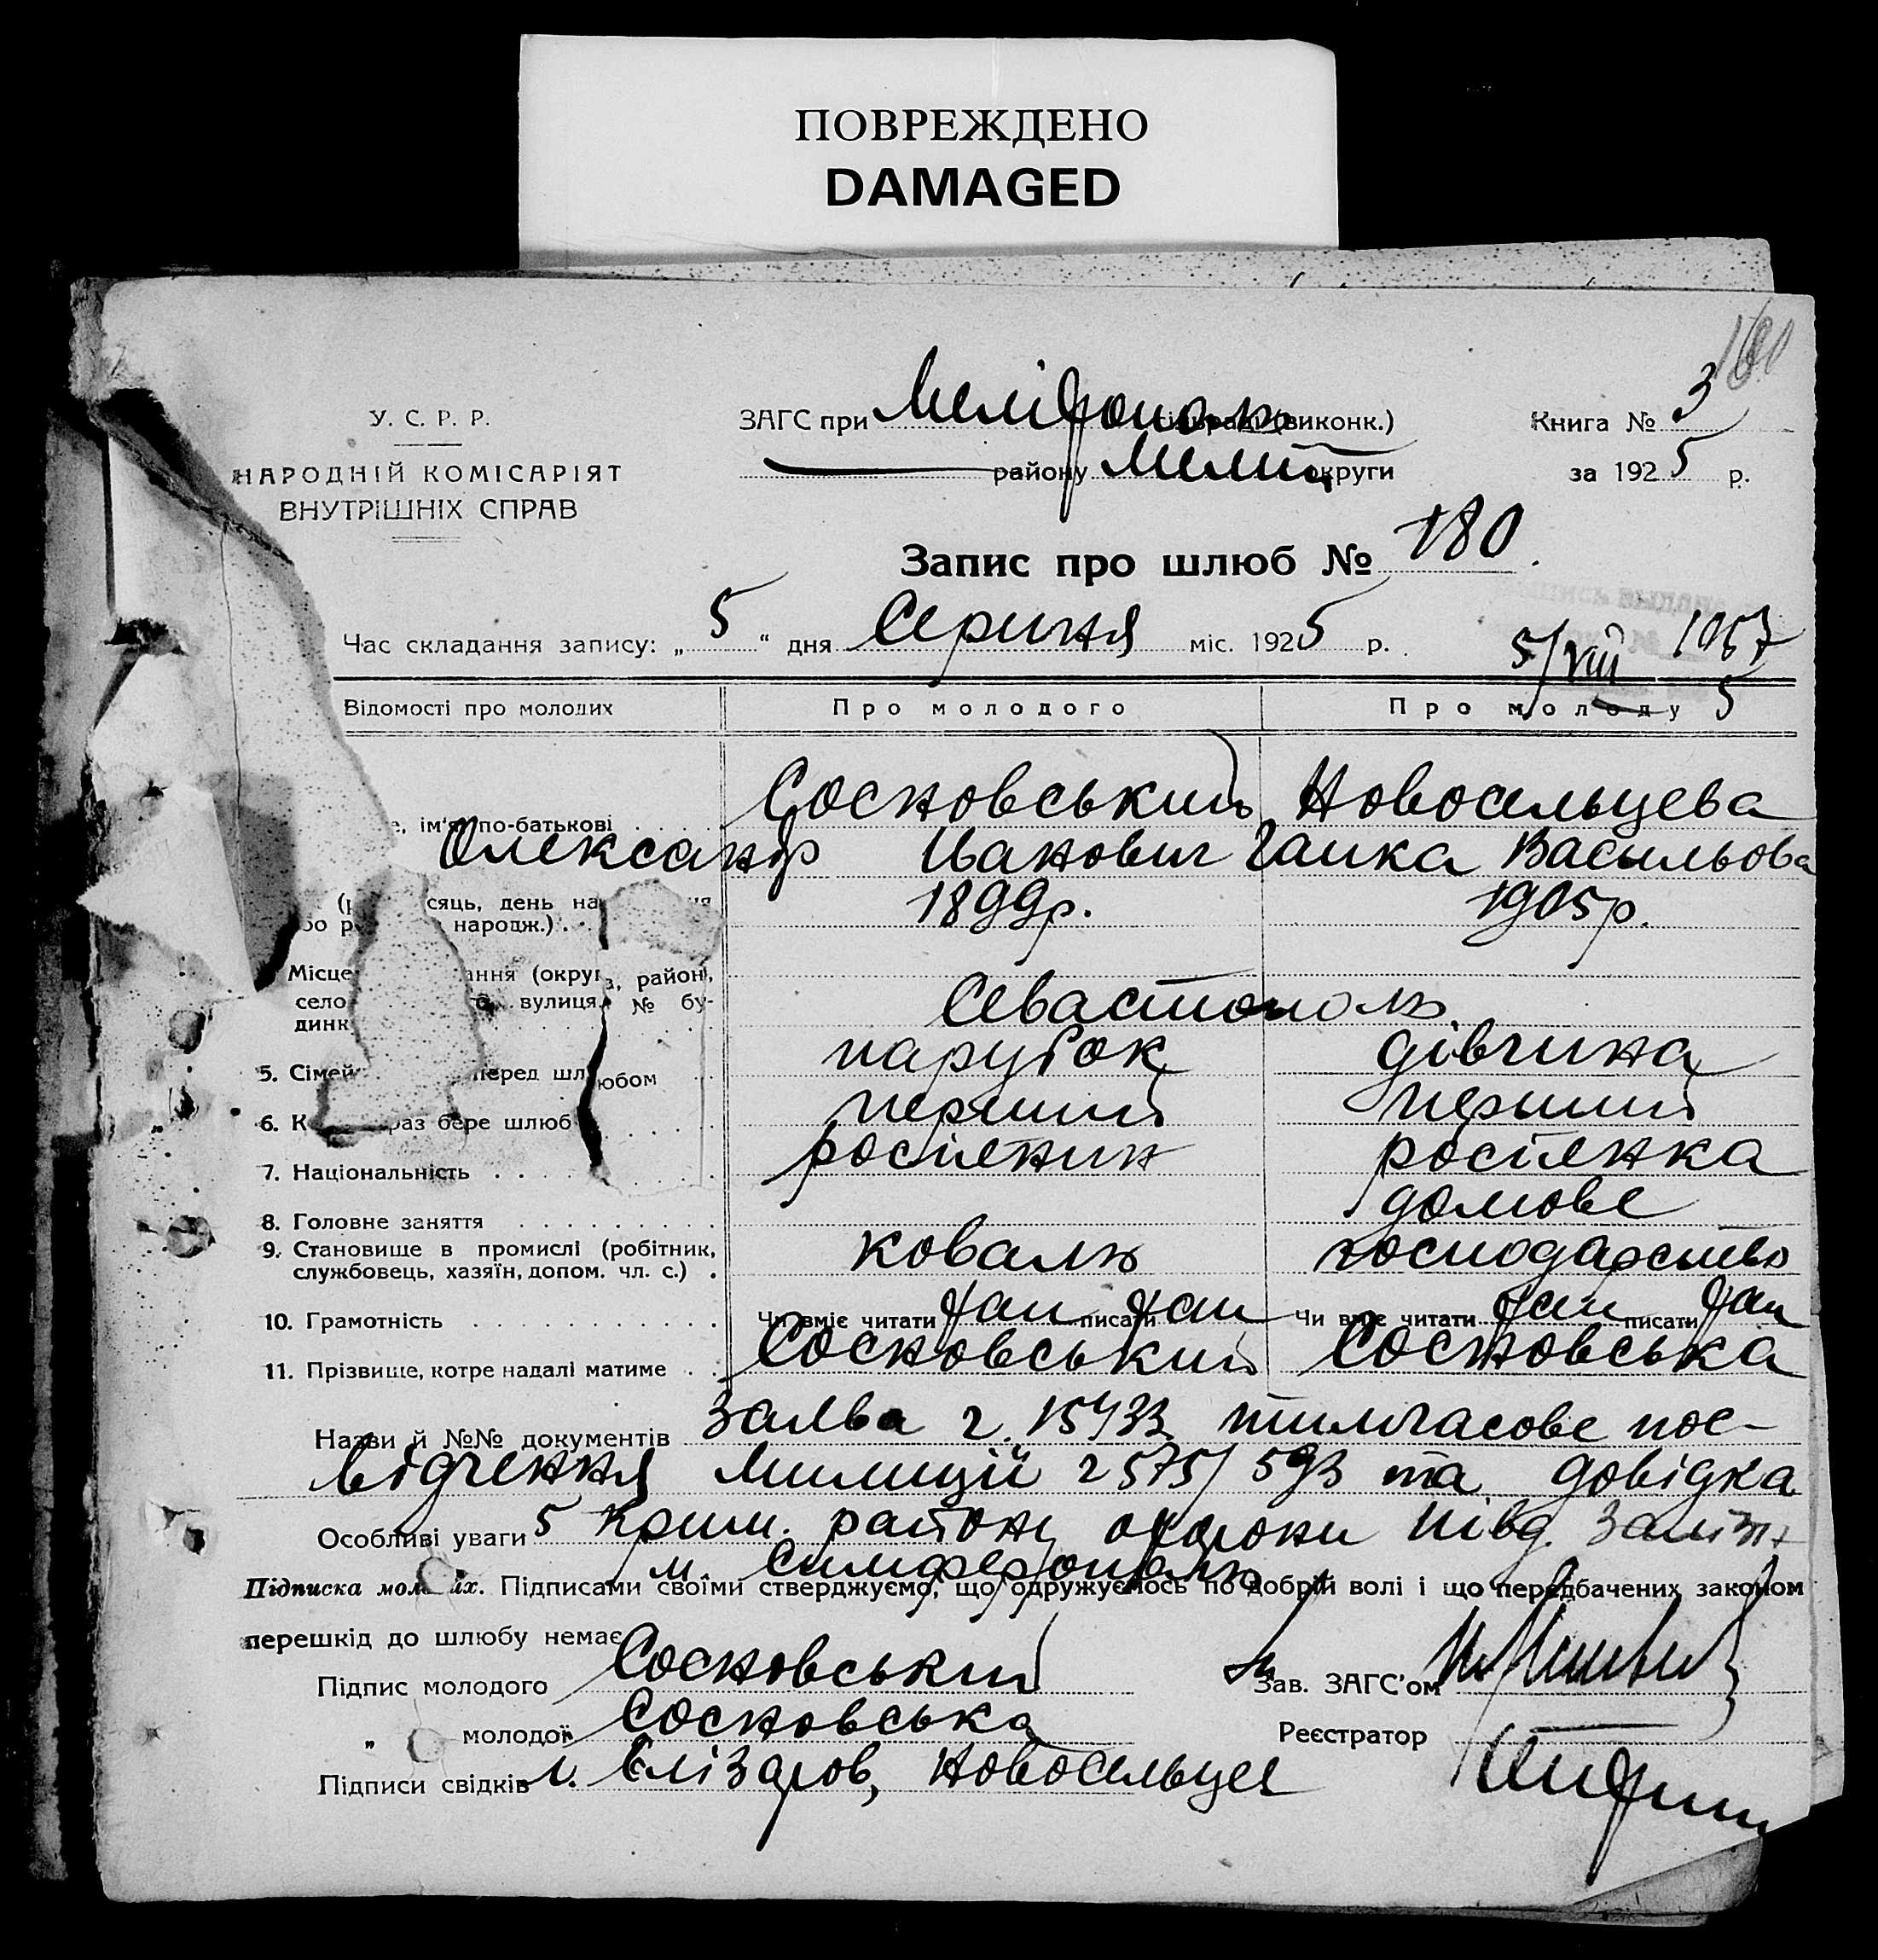 ПОВРЕЖДЕНО
DAMAGED
У. С. Р. Р.
НАРОДНІЙ КОМІСАРІЯТ
ВНУТРІШНІХ СПРАВ
ЗАГС при Мелітополь (виконк.)
району Меліт округи
Книга № 3
за 1925 р.
Запис про шлюб № 180
Час складання запису: „5“ дня Серпня міс. 1925 р.
5/VIII 5
Відомості про молодих Про молодого Про молоду
ім'я, по-батькові Сосновський Новосельцева
Олександр Іванович Ганка Васильова
сяць, день на
народж.) 1899р. 1905р.
Місце ання (округа, район,
село вулиця, № бу-
динк Севастополь
5. Сімей перед шлюбом парубок дівчина
6. К раз бере шлюб перший перший
7. Національність росіянин росіянка
8. Головне заняття домове
9. Становище в промислі (робітник,
службовець, хазяїн, допом. чл. с.) коваль господарство
10. Грамотність Чи вміє читати так писати так Чи вміє читати так писати так
11. Прізвище, котре надалі матиме Сосновський Сосновська
Назви й №№ документів заява тимчасове пос-
відчення Милиції 575/593 та довідка
Особливі уваги 5 Крим. району охорони Півд. Заліз
м. Симферополь
Підписка молодих. Підписами своїми стверджуємо, що одружуємось по добрій волі і що передбачених законом
перешкід до шлюбу немає
Підпис молодого Сосновський
Зав. ЗАГС'ом
„ молодої Сосновська
Реєстратор
Підписи свідків Єлізаров, Новосельцев